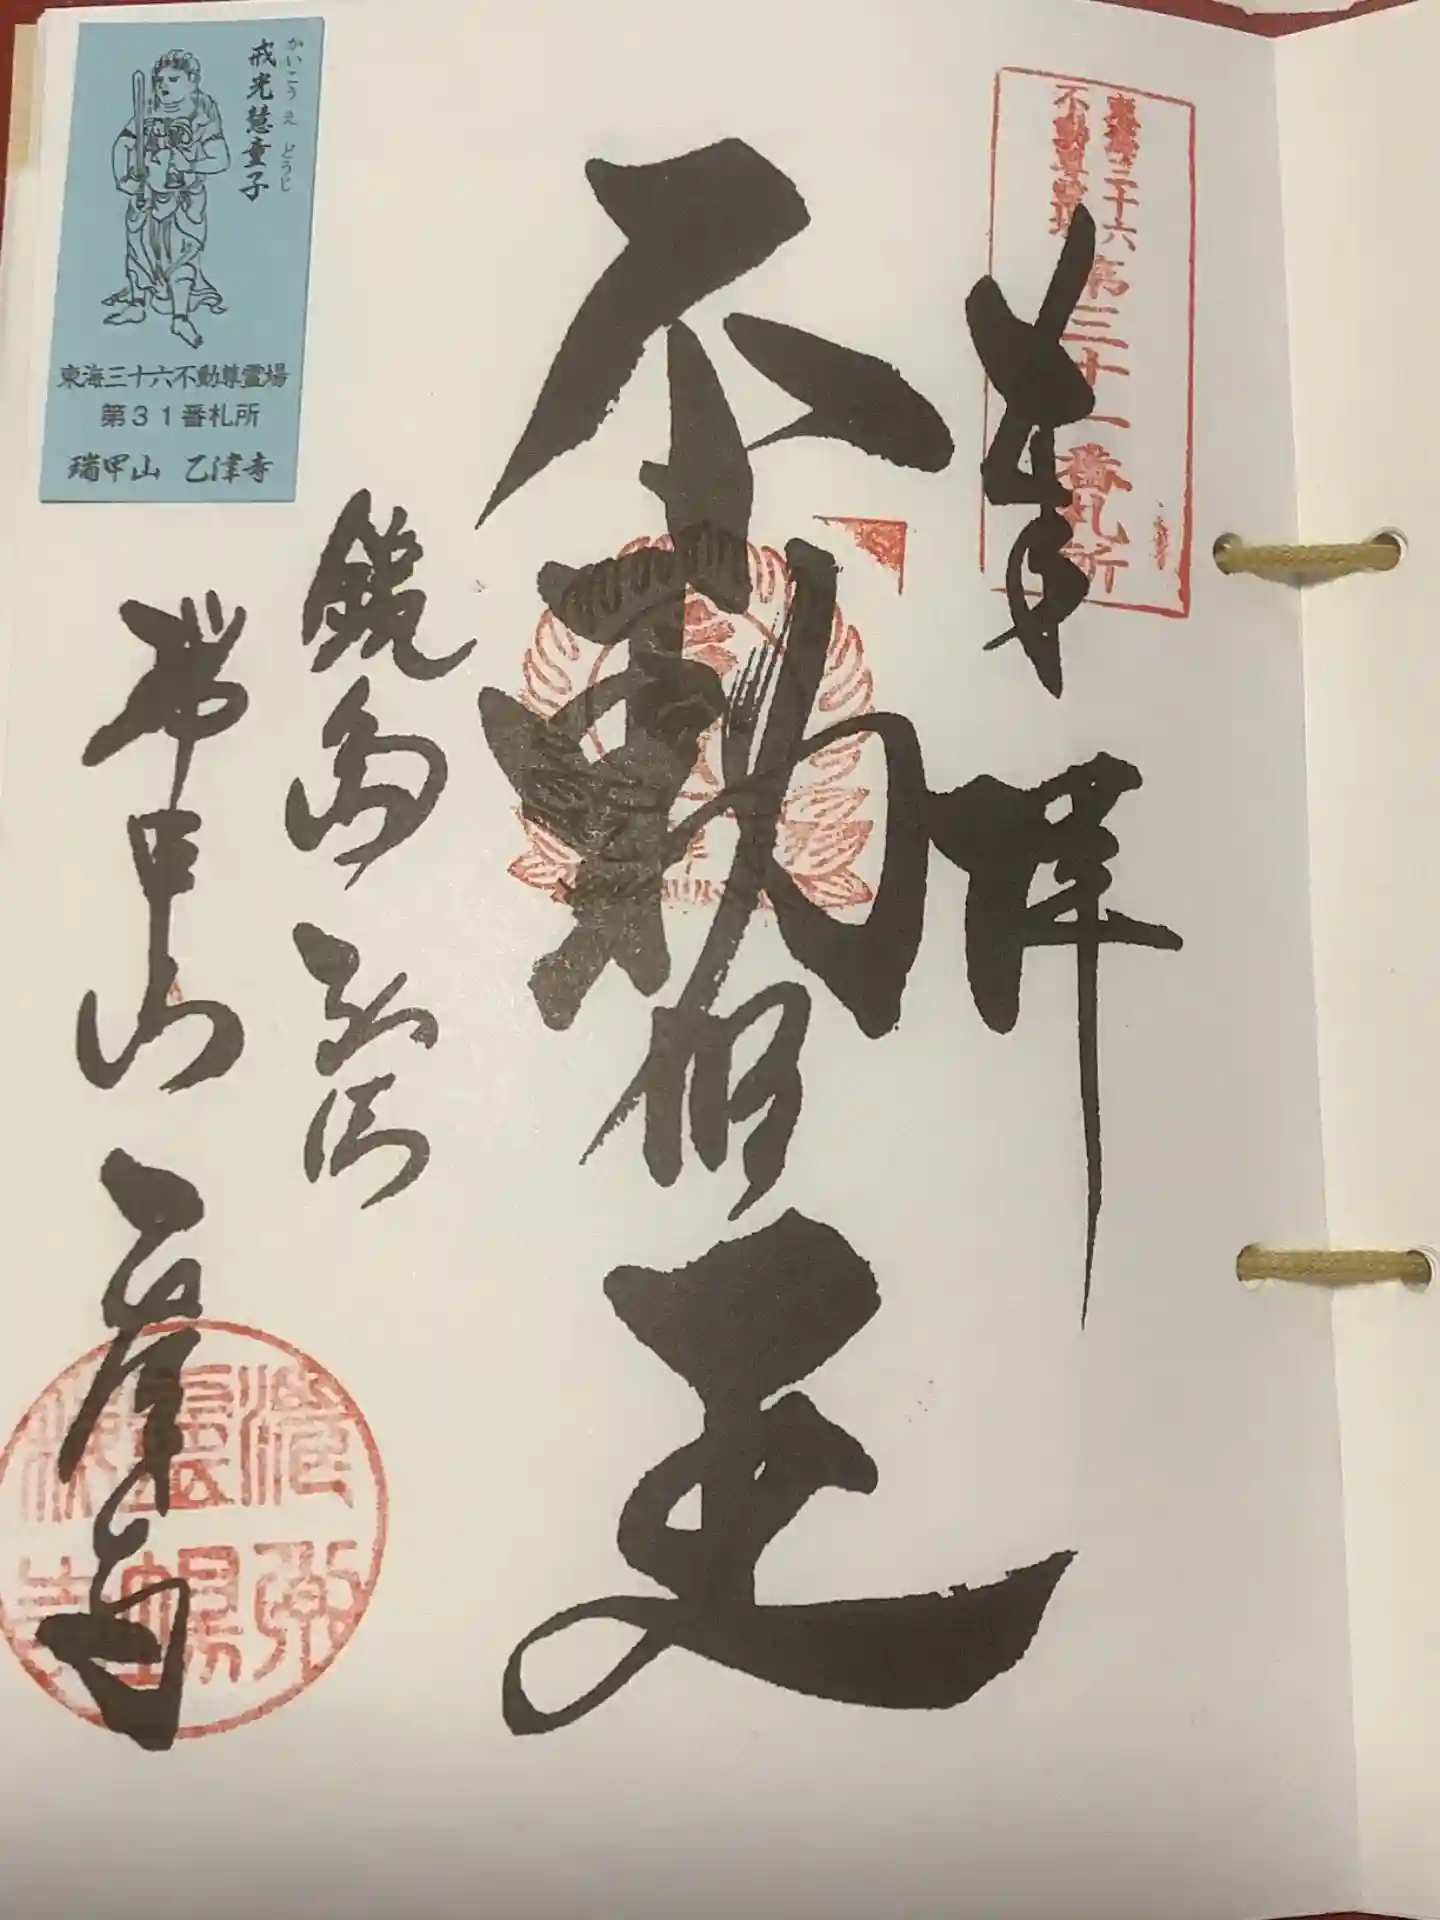 東海三十六
不動尊霊場
第三十一番札所
奉拝
不動明王
鏡島弘法
瑞甲山 乙津寺
かいこうえ どうじ
戒光慧童子
東海三十六不動尊霊場
第31番札所
瑞甲山 乙津寺